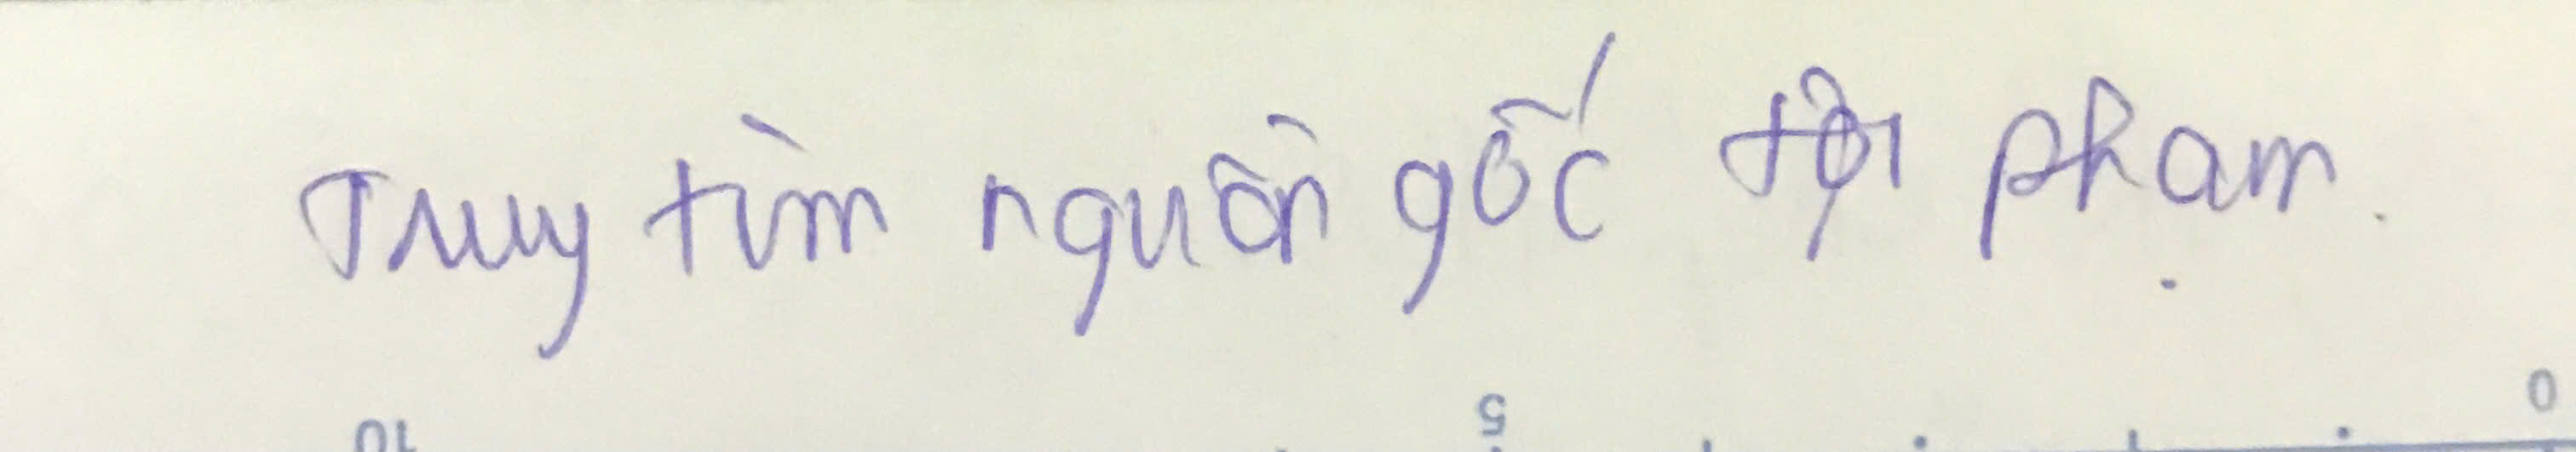 Truy tìm nguồn gốc tội phạm.
10 5 0